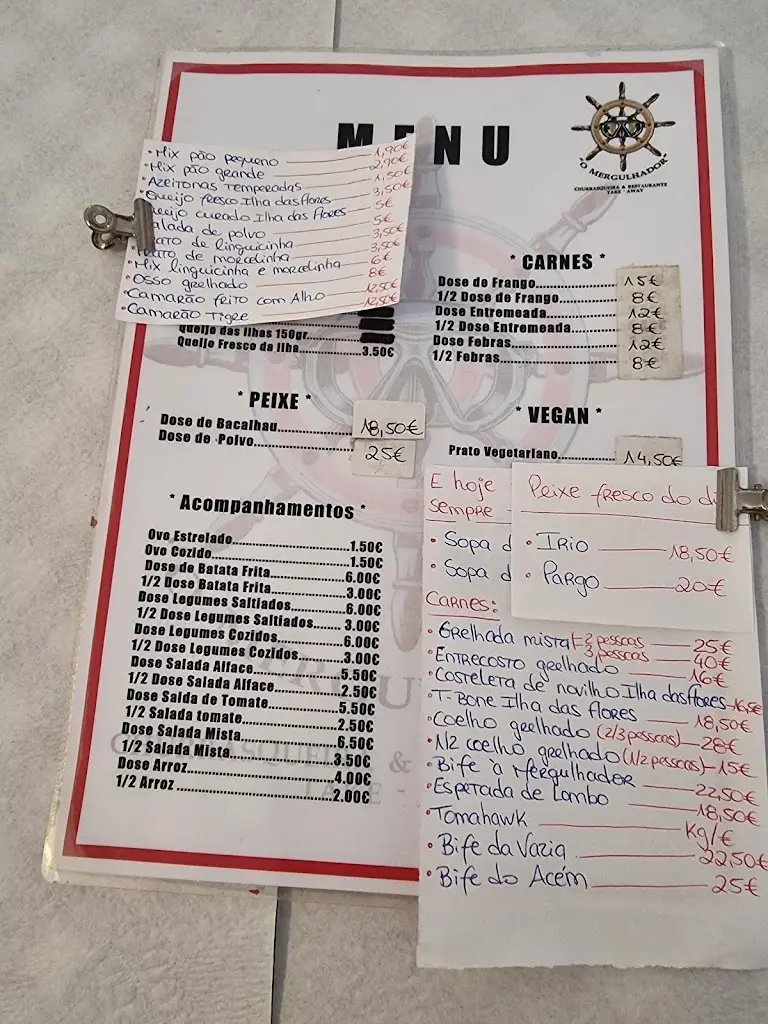 MENU
"O MERGULHADOR"
CHURRASQUEIRA & RESTAURANTE
TAKE - AWAY
• Mix pão pequeno 1,90€
• Mix pão grande 2,90€
• Azeitonas Temperadas 1,50€
• Queijo fresco Ilha das flores 3,50€
ueijo curado Ilha das Flores 5€
alada de polvo 5€
rato de linguicinha 3,50€
Prato de morcelinha 3,50€
• Mix linguicinha e morcelinha 6€
• Osso grelhado 8€
• Camarão feito com Alho 12,50€
• Camarão Tigre 12,50€
Queijo das Ilhas 150gr.
Queijo Fresco da Ilha...3.50€
* CARNES *
Dose de Frango.... 15€
1/2 Dose de Frango.... 8€
Dose Entremeada.... 12€
1/2 Dose Entremeada.... 8€
Dose Febras.... 12€
1/2 Febras.... 8€
* PEIXE *
Dose de Bacalhau.... 18,50€
Dose de Polvo.... 25€
* VEGAN *
Prato Vegetariano.... 14,50€
* Acompanhamentos *
Ovo Estrelado....1.50€
Ovo Cozido....1.50€
Dose de Batata Frita....6.00€
1/2 Dose Batata Frita....3.00€
Dose Legumes Saltiados....6.00€
1/2 Dose Legumes Saltiados.... 3.00€
Dose Legumes Cozidos....6.00€
1/2 Dose Legumes Cozidos....3.00€
Dose Salada Alface....5.50€
1/2 Dose Salada Alface....2.50€
Dose Salda de Tomate....5.50€
1/2 Salada tomate....2.50€
Dose Salada Mista....6.50€
1/2 Salada Mista....3.50€
Dose Arroz....4.00€
1/2 Arroz ....2.00€
E hoje
sempre
• Sopa d
• Sopa d
Peixe fresco do di
• Irio 18,50€
• Pargo 20€
Carnes:
• Grelhada mista 2 pessoas 25€
3 pessoas 40€
• Entrecosto grelhado 16€
• Costeleta de novilho Ilha das flores 16,5€
• T-Bone Ilha das flores 18,50€
• Coelho grelhado (2/3 pessoas) 28€
• 1/2 coelho grelhado (1/2 pessoas) 15€
• Bife à Mergulhador 22,50€
• Espetada de Lombo 18,50€
• Tomahawk Kg/€
• Bife da Vazia 22,50€
• Bife do Acém 25€